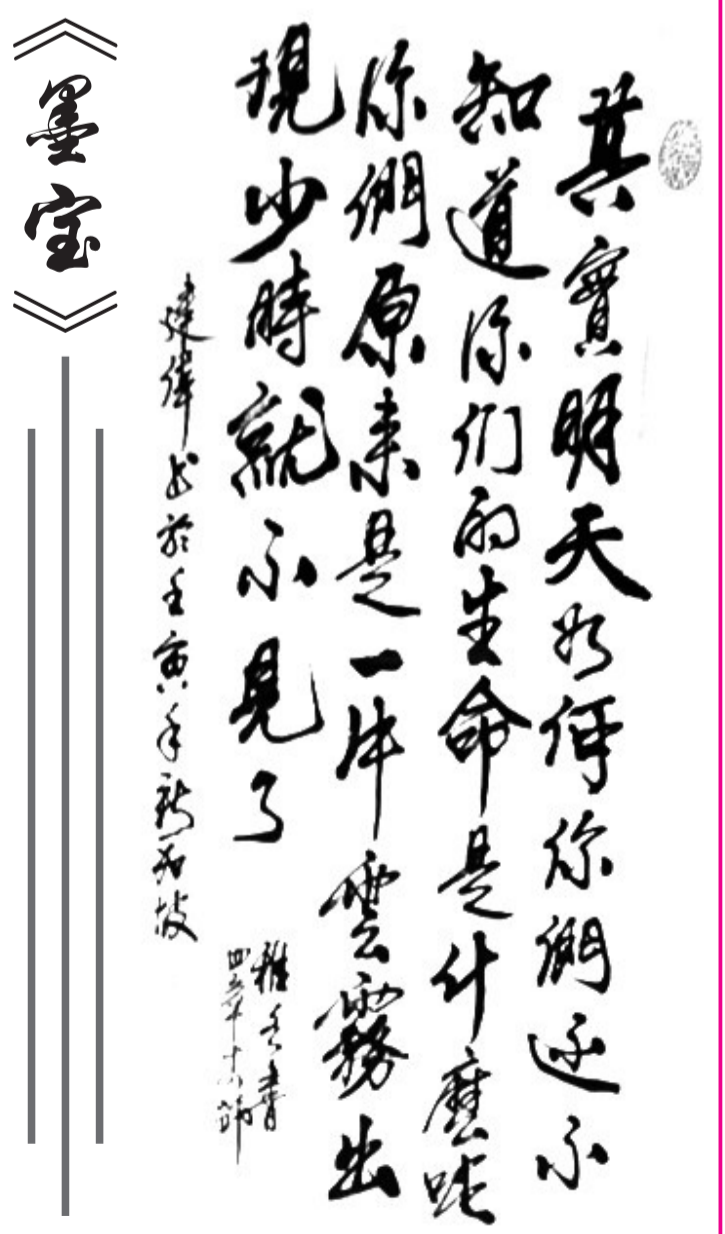 其實明天如何你們还不
知道你们的生命是什麼呢
你們原来是一片雲霧出
現少時就不見了
雅各書
四章十四節
建偉书於壬寅年新加坡
《墨宝》